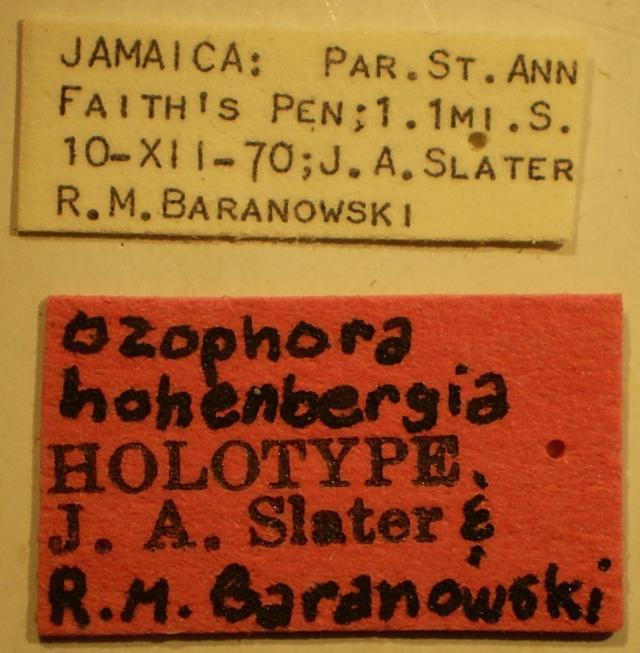 JAMAICA: PAR.ST.ANN
FAITH'S PEN;1.1MI.S.
10-XII-70;J.A.SLATER
R.M.BARANOWSKI
Ozophora
hohenbergia
HOLOTYPE
J. A. Slater &
R.M. Baranowski